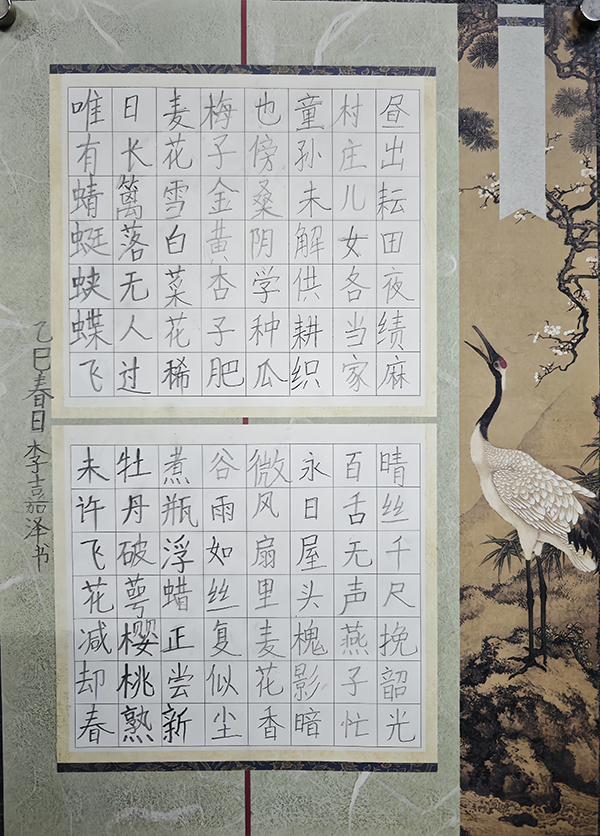 昼出耘田夜绩麻
村庄儿女各当家
童孙未解供耕织
也傍桑阴学种瓜
梅子金黄杏子肥
麦花雪白菜花稀
日长篱落无人过
唯有蜻蜓蛱蝶飞
晴丝千尺挽韶光
百舌无声燕子忙
永日屋头槐影暗
微风扇里麦花香
谷雨如丝复似尘
煮瓶浮蜡正尝新
牡丹破萼樱桃熟
未许飞花减却春
乙巳春日李嘉泽书